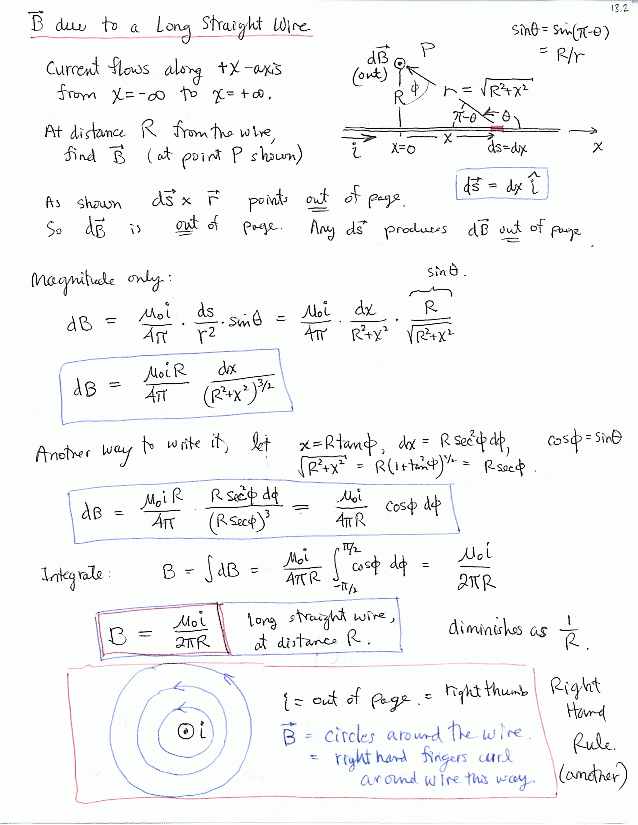 13.2
B⃗ due to a Long Straight Wire
sinθ = sin(π-θ)
= R/r
Current flows along +x-axis
from x=-∞ to x=+∞.
At distance R from the wire,
find B⃗ (at point P shown)
dB⃗
(out)
P
R
φ
r = √(R²+x²)
π-θ
θ
i
x=0
x
ds=dx
x
ds⃗ = dx î
As shown ds⃗ × r⃗ points out of page.
So dB⃗ is out of page. Any ds⃗ produces dB⃗ out of page
Magnitude only:
sinθ.
dB = μ₀i/4π · ds/r² · sinθ = μ₀i/4π · dx/(R²+x²) · R/√(R²+x²)
dB = μ₀iR/4π dx/(R²+x²)^(3/2)
Another way to write it, let x=Rtanφ, dx = R sec²φ dφ, cosφ=sinθ
√(R²+x²) = R(1+tan²φ)^(1/2) = R secφ.
dB = μ₀iR/4π · R sec²φ dφ/(R secφ)³ = μ₀i/4πR cosφ dφ
Integrate: B = ∫dB = μ₀i/4πR ∫_{-π/2}^{π/2} cosφ dφ = μ₀i/2πR
B = μ₀i/2πR long straight wire,
at distance R.
diminishes as 1/R.
i
i = out of page. = right thumb
B⃗ = circles around the wire.
= right hand fingers curl
around wire this way.
Right
Hand
Rule.
(another)